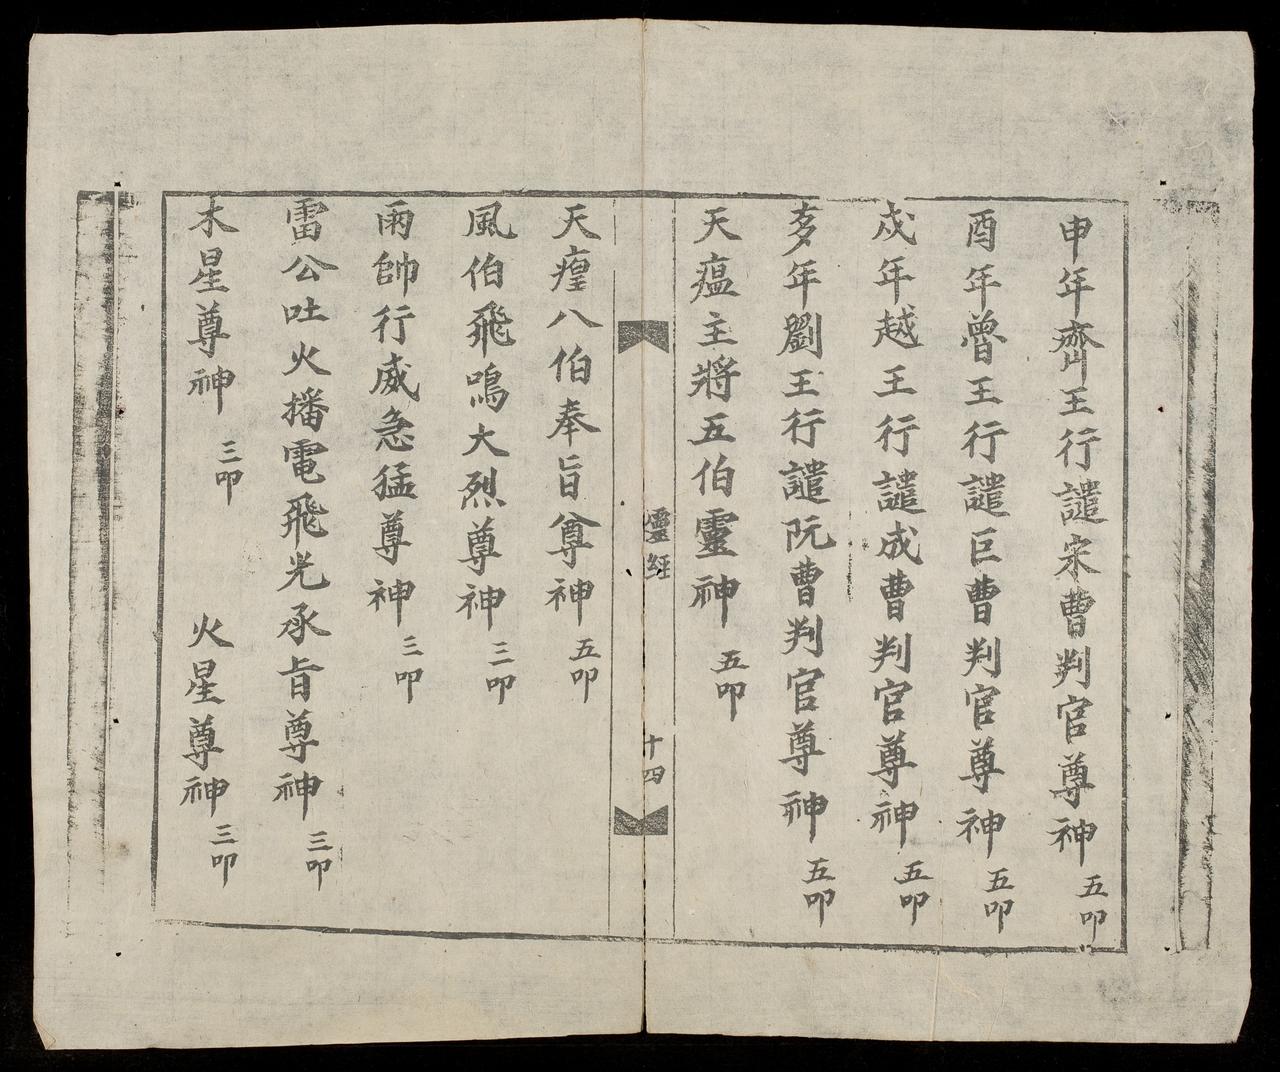 申年齊王行譴宋曹判官尊神 五叩
酉年曾王行譴巨曹判官尊神 五叩
戍年越王行譴成曹判官尊神 五叩
亥年劉王行譴阮曹判官尊神 五叩
天瘟主將五伯靈神 五叩
靈經 十四
天瘟八伯奉旨尊神 五叩
風伯飛鳴大烈尊神 三叩
雨帥行威急猛尊神 三叩
雷公吐火播電飛光承旨尊神 三叩
木星尊神 三叩 火星尊神 三叩